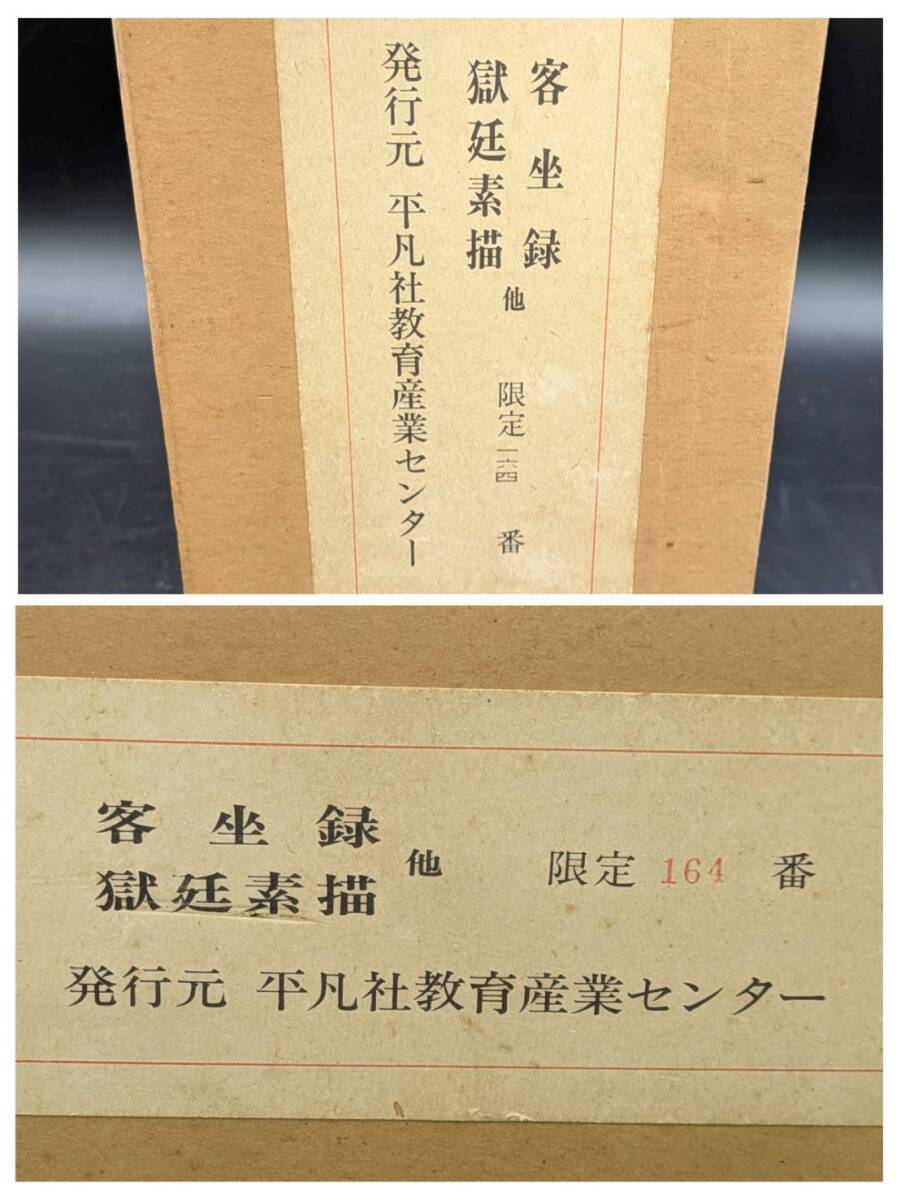 客坐録
獄廷素描 他 限定一六四番
発行元 平凡社教育産業センター
客坐録
獄廷素描 他 限定 164 番
発行元 平凡社教育産業センター